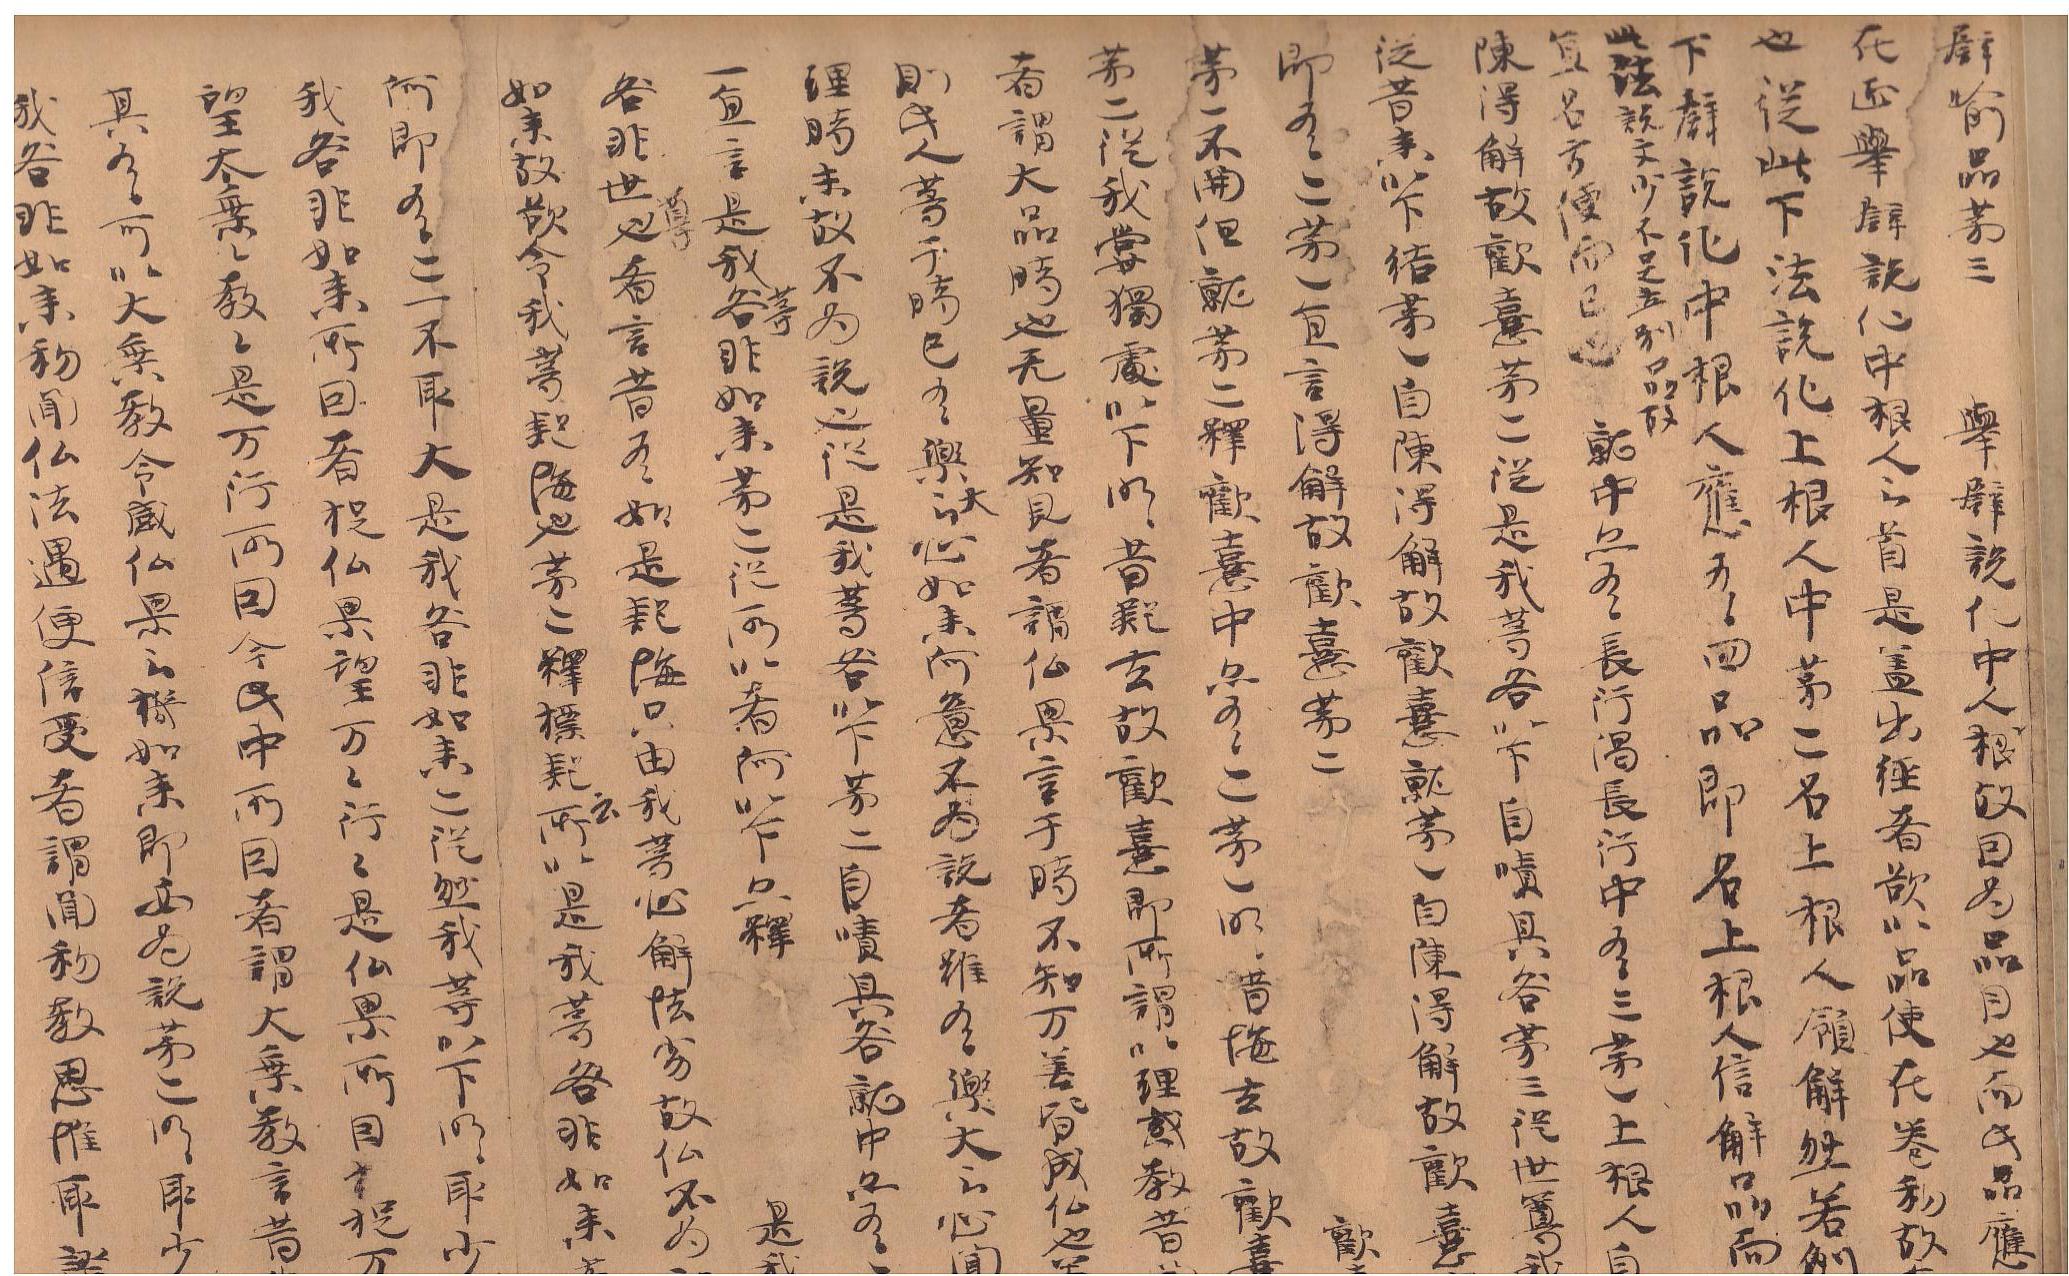 譬喻品第三　舉譬說化中人根故因為品目也而此品應
在正舉譬說化中根人之首是蓋出経者欲以品使在卷初故
也從此下法說化上根人中第二名上根人領解然若例
下譬說化中根人應有四品即名上根人信解品而
此法說文少不足立別品故
宜名方便而已也　就中亦有長行偈長行中有三第一上根人自
陳得解故歡憙第二從是我等咎以下自嘖其咎第三從世尊我
從昔来以下結第一自陳得解故歡憙就第一自陳得解故歡憙
即有二第一直言得解故歡憙第二　歡
第一不開但就第二釋歡憙中亦有二第一明昔悔去故歡憙
第二從我甞獨處以下明昔疑去故歡憙即所謂以理或教昔
者謂大品時也无量知見者謂仏果言于時不知万善皆成仏也
則此人等于時已有樂大之心如来何意不為說者雖有樂大之心聞
理時未故不為說也從是我等咎以下第二自嘖其咎就中亦有
一直言是我等咎非如来第二從所以者何以下亦釋　是我
咎非世尊也者言昔有如是疑悔只由我等心解怯劣故仏不為
如来故欲令我等疑悔也第二釋標疑云所以是我等咎非如来
何即有二一不取大是我咎非如来二從然我等以下明取少
我咎非如来所因者捉仏果望万々行々是仏果所因十捉万
望大乗々教々是万行所因今此中所因者謂大乗教言昔
其有可以大乗教令感仏果之機如来即必為說第二明取少
我咎非如来初聞仏法遇便信受者謂聞初教思惟取證